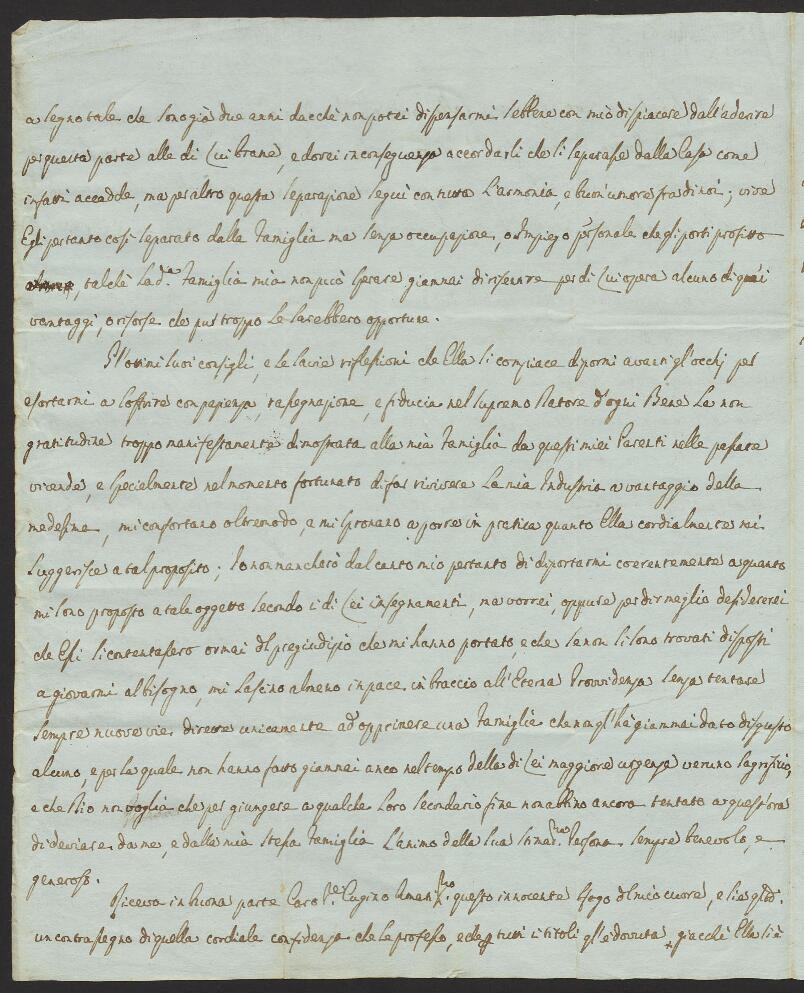 a segno tale che sono già due anni dacchè non potei dispensarmi sebbene con mio dispiacere dall'aderire
per questa parte alle di Lui brame, e dovei in conseguenza accordarli che si separasse dalla Casa come
infatti accadde, ma per altro questa separazione seguì con tutta L'armonia, e buon'umore fra di noi; vive
Egli pertanto così separato dalla Famiglia ma senza occupazione, o Impiego personale che gli porti profitto
, talchè La d.ª Famiglia mia non può sperare giammai di risentire per di Lui opera alcuno di quei
vantaggi, o risorse che pur troppo Le sarebbero opportune.
Gl'ottimi suoi consigli, e Le savie riflessioni che Ella si compiace di pormi avanti gl'occhj per
esortarmi a soffrire con pazienza, rassegnazione, e fiducia nel supremo Datore d'ogni Bene La non
gratitudine troppo manifestamente dimostrata alla mia Famiglia da questi miei Parenti nelle passate
vicende, e specialmente nel momento fortunato di far rivivere La mia Industria a vantaggio della
medesima, mi confortano oltremodo, e mi spronano a porre in pratica quanto Ella cordialmente mi
suggerisce a tal proposito; Io non mancherò dal canto mio pertanto di diportarmi coerentemente a quanto
mi sono proposto a tale oggetto secondo i di Lei insegnamenti, ma vorrei, oppure per dir meglio desidererei
che Essi si contentassero ormai del pregiudizio che mi hanno portato, e che se non si sono trovati disposti
a giovarmi al bisogno, mi Lascino almeno in pace in braccio all'Eterna Provvidenza senza tentare
sempre nuove vie dirette unicamente ad opprimere una Famiglia che non gl'hà giammai dato disgusto
alcuno, e per la quale non hanno fatto giammai anco nel tempo della di Lei maggiore urgenza veruno sagrifizio,
e che Dio non voglia che per giungere a qualche Loro secondario fine non abbino ancora tentato a quest'ora
di deviare da me, e dalla mia stessa Famiglia L'animo della sua stimad.ma Persona sempre benevolo, e
generoso.
Riceva in buona parte Caro Sig.e Cugino Aman.mo questo innocente sfogo del mio cuore, e sia gl'd.
un contrassegno di quella cordiale confidenza che Le professo, e che per tutti i titoli gl'è dovuta, giacchè Ella si è